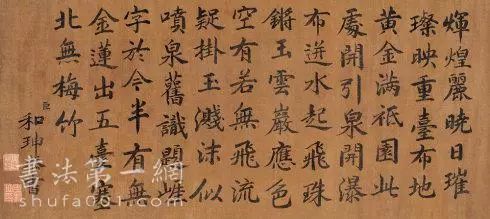 輝煌麗曉日璀
璨映重臺布地
黃金滿祗園此
處開引泉開瀑
布迸水起飛珠
鏘玉雲巖應色
空有若無飛流
疑掛玉濺沫似
噴泉舊識
字於今半有無
金蓮出五臺塞
北無梅竹
臣和珅
書法第一網
shufa001.com